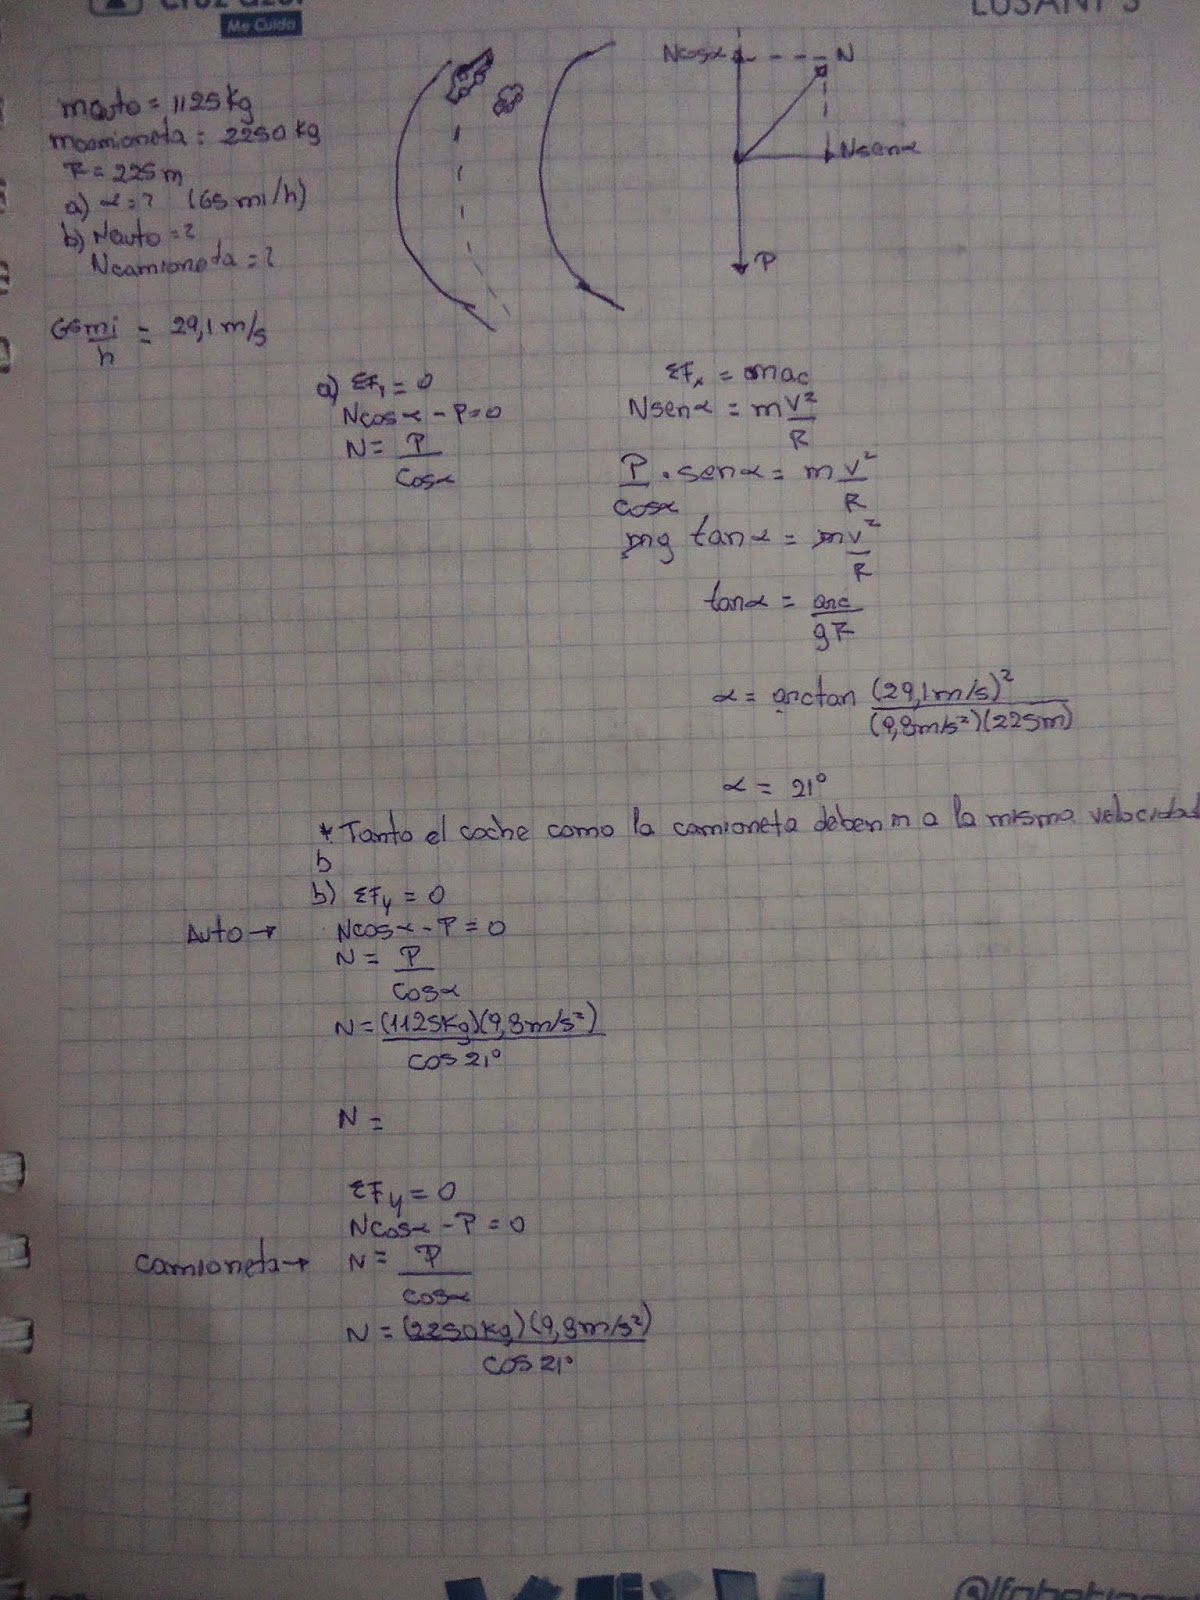 Cruz Azul
Me Cuida
LUSANI'S
mauto = 1125 kg
mcamioneta = 2250 kg
R = 225 m
a) α = ? (65 mi/h)
b) Nauto = ?
Ncamioneta = ?
65 mi/h = 29,1 m/s
Ncosα
N
Nsenα
P
a) ΣFy = 0
Ncosα - P = 0
N = P/Cosα
ΣFx = mac
Nsenα = m v²/R
P/cosα . senα = m v²/R
mg tanα = m v²/R
tanα = arc/gR
α = arctan (29,1 m/s)²/(9,8 m/s²)(225m)
α = 21°
* Tanto el coche como la camioneta deben ir a la misma velocidad
b
b) ΣFy = 0
Auto → Ncosα - P = 0
N = P/cosα
N = (1125kg)(9,8 m/s²)/cos 21°
N =
ΣFy = 0
Ncosα - P = 0
Camioneta → N = P/cosα
N = (2250 kg)(9,8 m/s²)/cos 21°